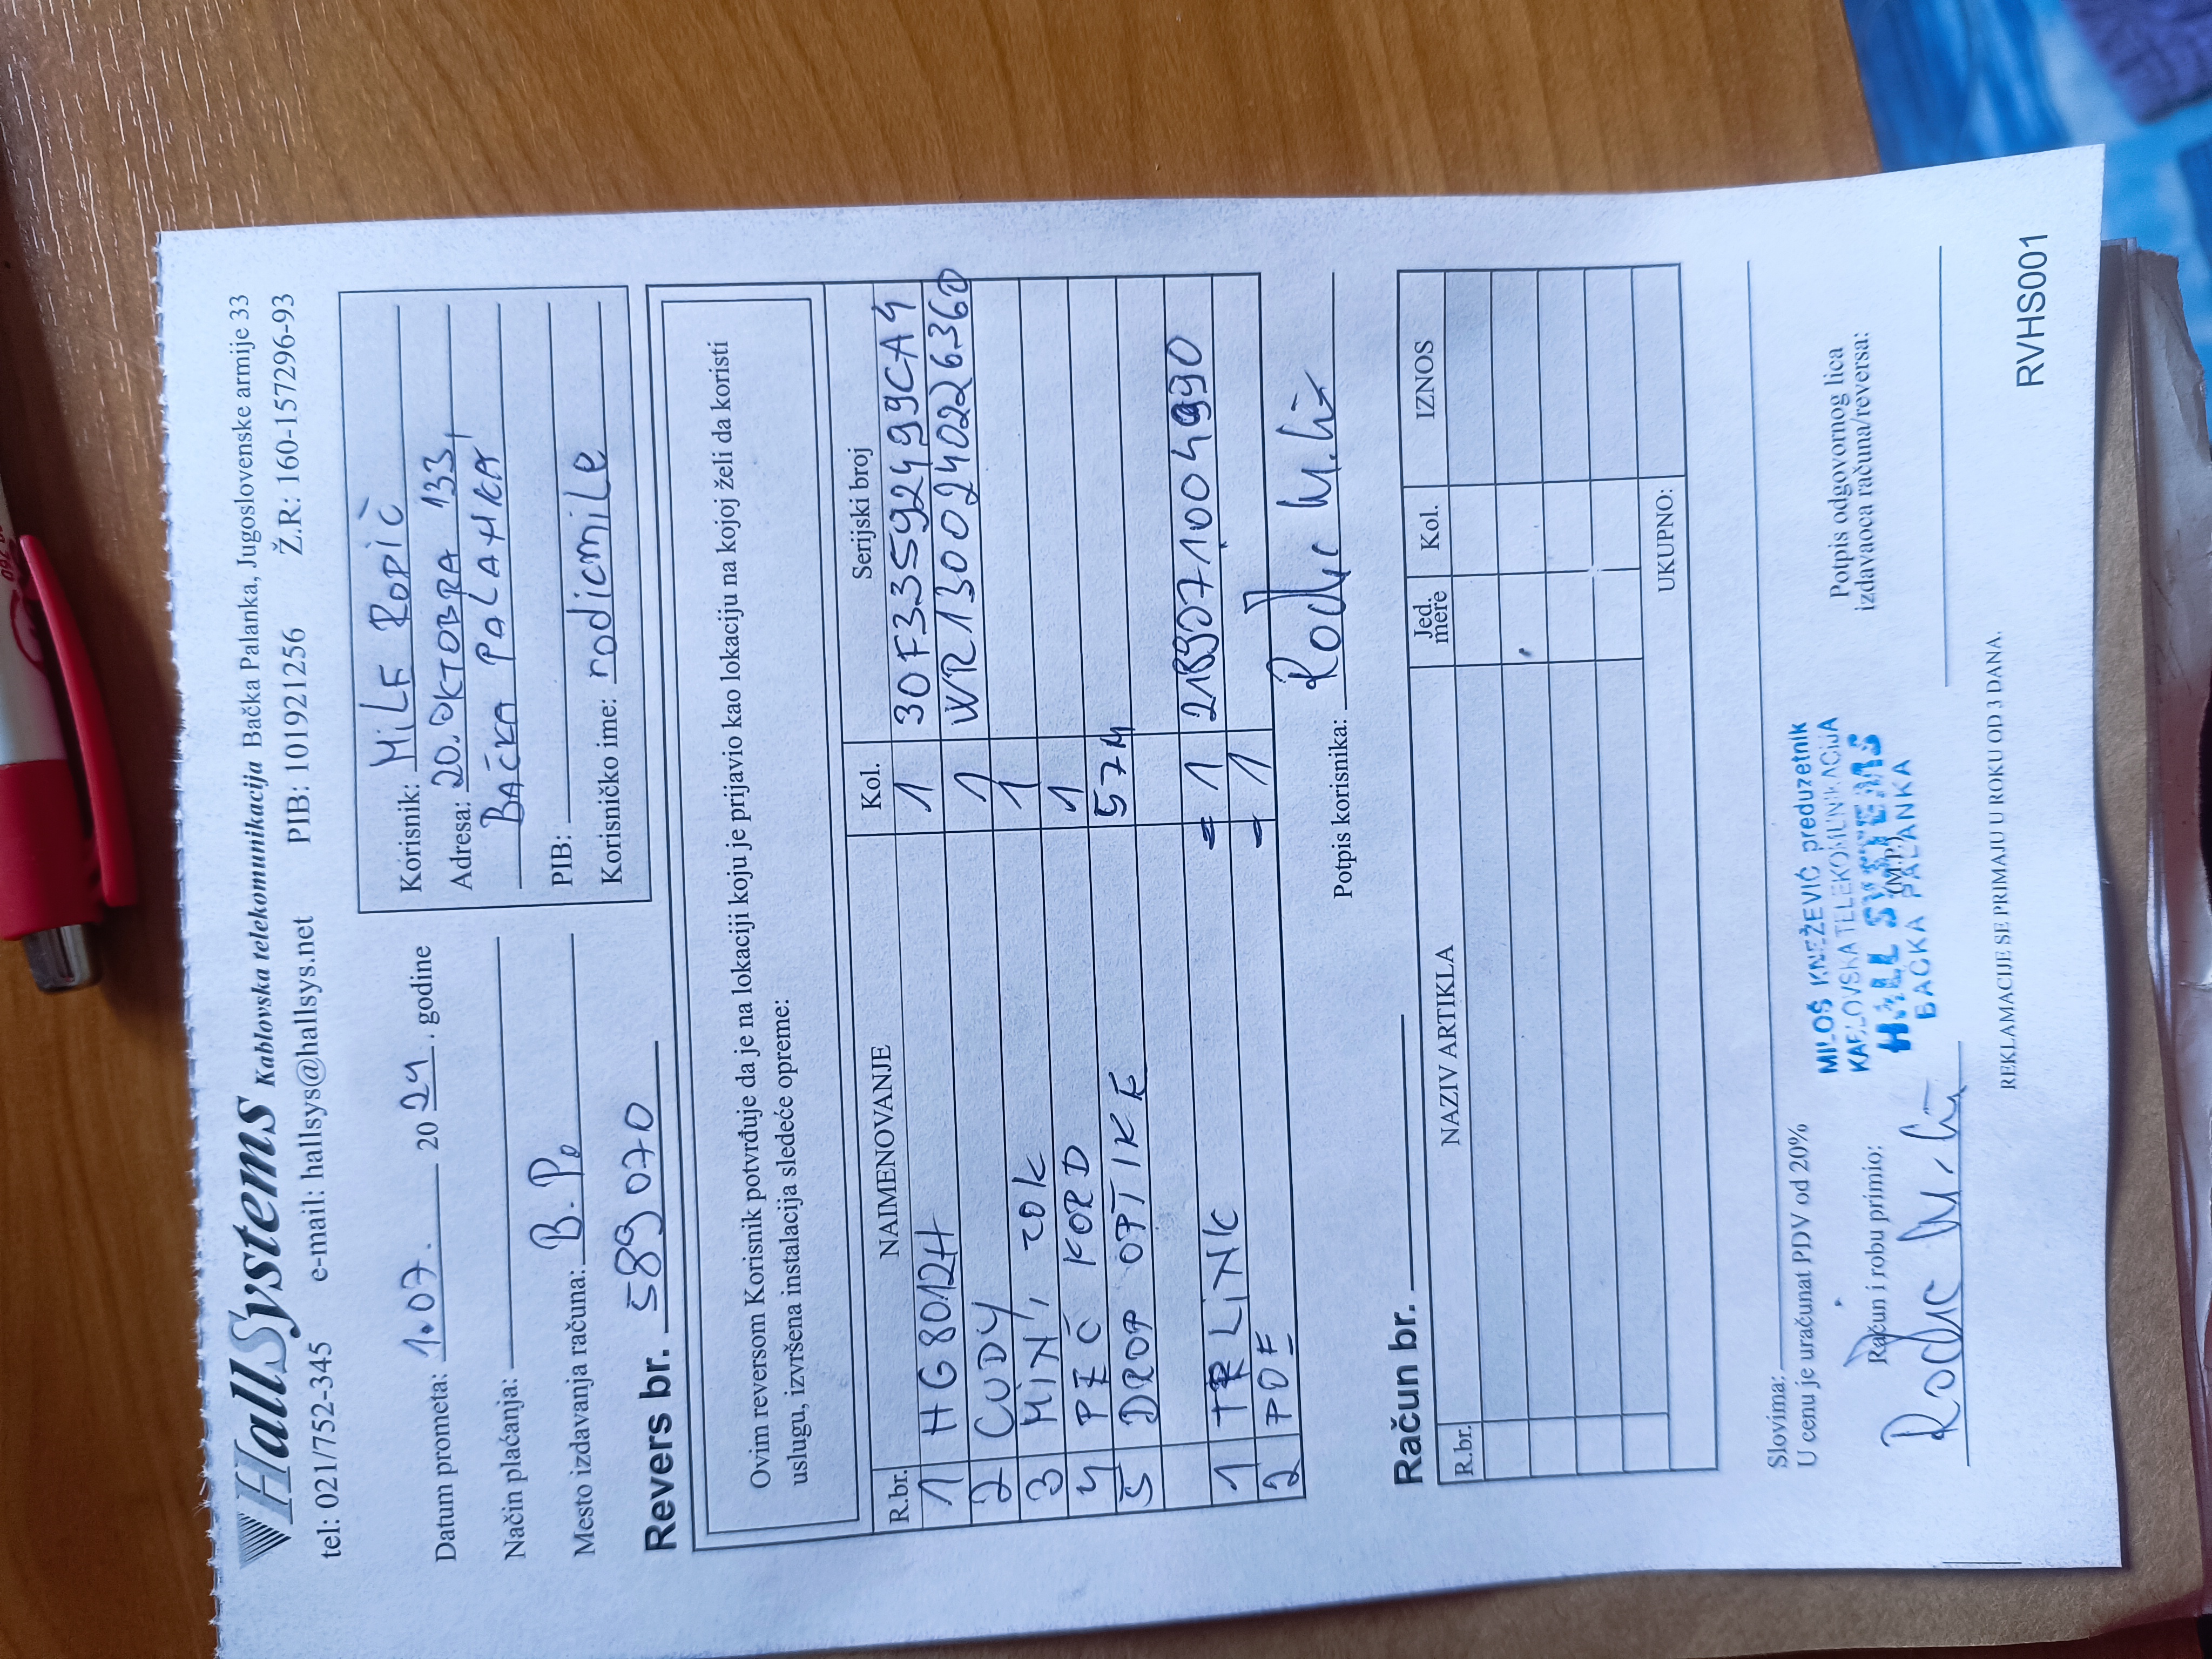 HallSystems Kablovska telekomunikacija Bačka Palanka, Jugoslovenske armije 33
tel: 021/752-345 e-mail: hallsys@hallsys.net PIB: 101921256 Ž.R.: 160-157296-93
Datum prometa: 1.07. 2024. godine
Način plaćanja:
Mesto izdavanja računa: B.P.
Korisnik: MiLE RODiĆ
Adresa: 20. OKTOBRA 133,
BAČKA PALANKA
PIB:
Korisničko ime: rodicmile
Revers br. 589070
Ovim reversom Korisnik potvrđuje da je na lokaciji koju je prijavio kao lokaciju na kojoj želi da koristi
uslugu, izvršena instalacija sledeće opreme:
R.br. NAIMENOVANJE Kol. Serijski broj
1 HG8012H 1 30F33592499CA4
2 CUDY 1 WR1300240226360
3 MiNi ZOK 1
4 PEČ KORD 1
5 DROP OPTIKE 57M
1 TPLiNK - 1 2189071004990
2 POE - 1
Potpis korisnika: Rodić Mile
Račun br.
R.br. NAZIV ARTIKLA Jed. mere Kol. IZNOS
UKUPNO:
Slovima:
U cenu je uračunat PDV od 20%
Račun i robu primio:
Rodić Mile
MILOŠ KNEŽEVIĆ preduzetnik
KABLOVSKA TELEKOMUNIKACIJA
HALL SYSTEMS
(M.P.)
BAČKA PALANKA
Potpis odgovornog lica
izdavaoca računa/reversa:
REKLAMACIJE SE PRIMAJU U ROKU OD 3 DANA.
RVHS001